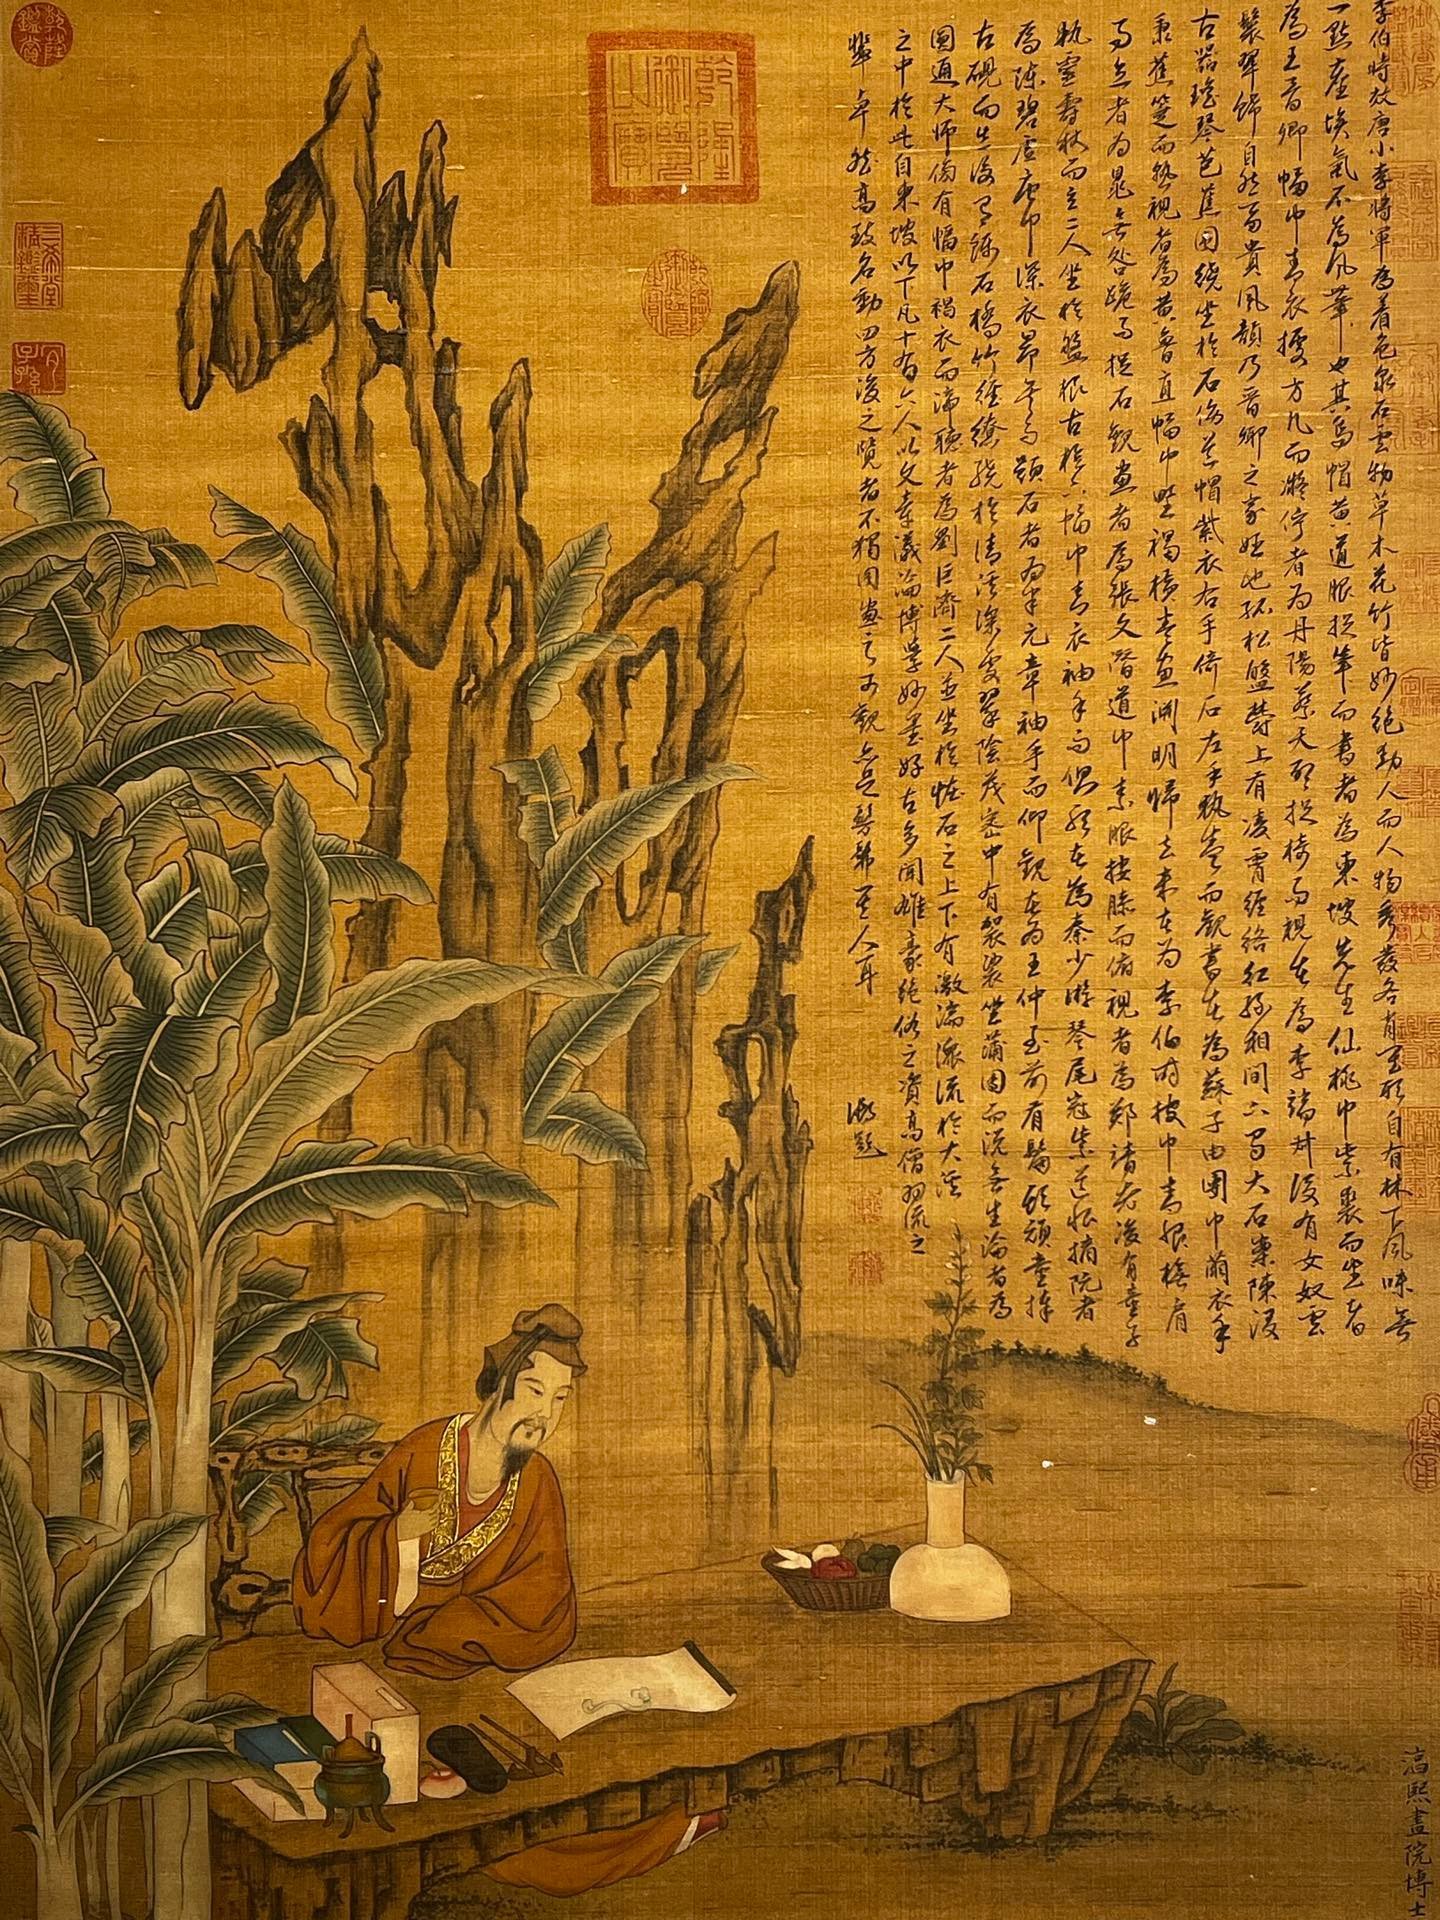 李伯時效唐小李將軍為着色泉石雲物草木花竹皆妙絕動人而人物秀發各肖其形自有林下風味無
一點塵埃氣不為凡筆也其烏帽黃道服捉筆而書者為東坡先生仙桃巾紫裘而坐者
為王晉卿幅巾青衣據方几而凝佇者為丹陽蔡天啓捉椅而視者為李端叔後有女奴雲
鬟翠飾自然富貴風韻乃晉卿之家姬也孤松盤鬱上有凌霄纏絡紅綠相間下有大石案陳設
古器瑤琴芭蕉圍繞坐於石傍道帽紫衣右手倚石左手執卷而觀書者為蘇子由團巾繭衣手
秉蕉箑而熟視者為黃魯直幅巾野褐橫卷畫淵明歸去來者為李伯時披巾青服撫肩
而立者為晁無咎跪而捉石觀畫者為張文潛道巾素服按膝而俯視者為鄭靖老後有童子
執靈壽杖而立二人坐於盤根古檜下幅巾青衣袖手而側聽者為秦少游琴尾冠紫道服摘阮者
為陳碧虛唐巾深衣昂首而題石者為米元章袖手而仰觀者為王仲至前有鬅頭頑童捧
古硯而立後有錦石橋竹逕繚繞於清溪深處翠陰茂密中有袈裟坐蒲團而說無生論者為
圓通大師傍有幅巾褐衣而諦聽者為劉巨濟二人並坐於怪石之上下有激湍潨流於大溪
之中於此自東坡以下凡十有六人以文章議論博學妙墨好古多聞雄豪絕俗之資高僧羽流之
輩卓然高致名動四方後之覽者不獨因畫之可觀亦足髣髴其人耳
題
乾隆御覽之寶
乾隆御覽之寶
乾隆鑑賞
三希堂精鑑璽
宜子孫
淳熙畫院博士